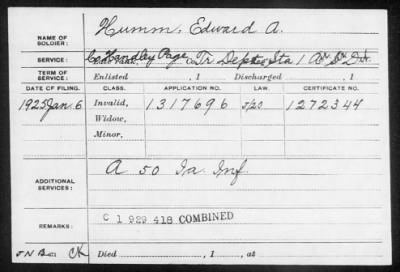 NAME OF SOLDIER: Humm, Edward A.
SERVICE: C. Handley Page Tr Dept Sta 1 Det.
TERM OF SERVICE: Enlisted , 1 Discharged , 1
DATE OF FILING. CLASS. APPLICATION NO. LAW. CERTIFICATE NO.
1925 Jan. 6 Invalid, 1317696 5/20 1272344
Widow,
Minor,
ADDITIONAL SERVICES: A 50 Ia. Inf.
REMARKS: C 1 929 418 COMBINED
Died , 1 , at